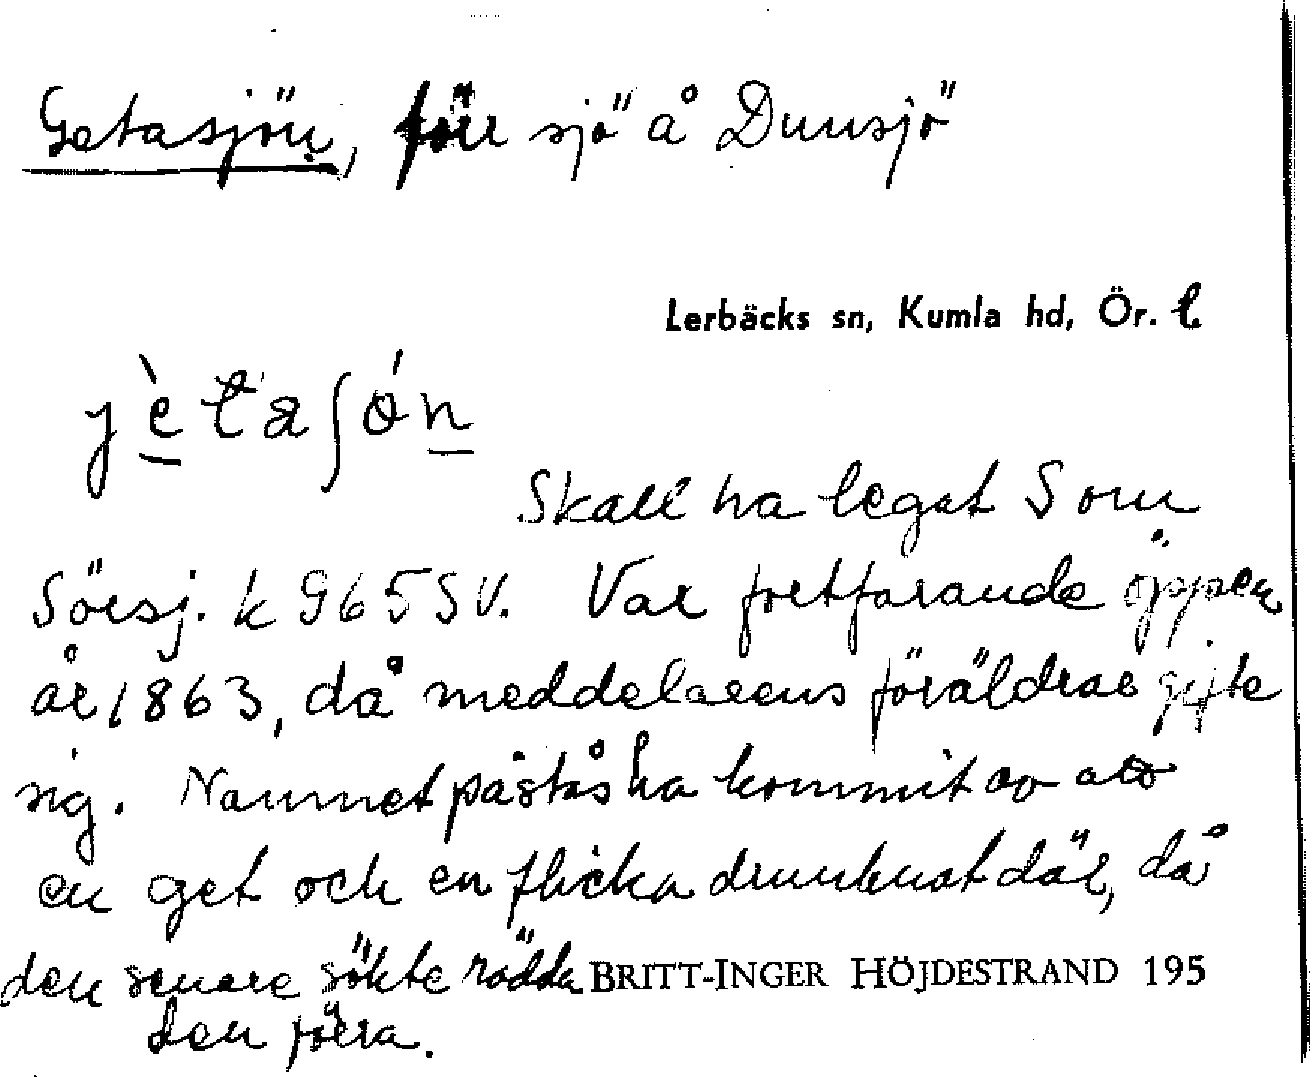 Getasjön, förr sjö å Dunsjö
Lerbäcks sn, Kumla hd, Ör. l
jètaʃón
Skall ha legat S om
Sörsj. k 965 SV. Var fortfarande öppen
år 1863, då meddelarens föräldrar gifte
sig. Namnet påstås ha kommit av att
en get och en flicka drunknat där, då
den senare sökte rädda BRITT-INGER HÖJDESTRAND 195
den förra.